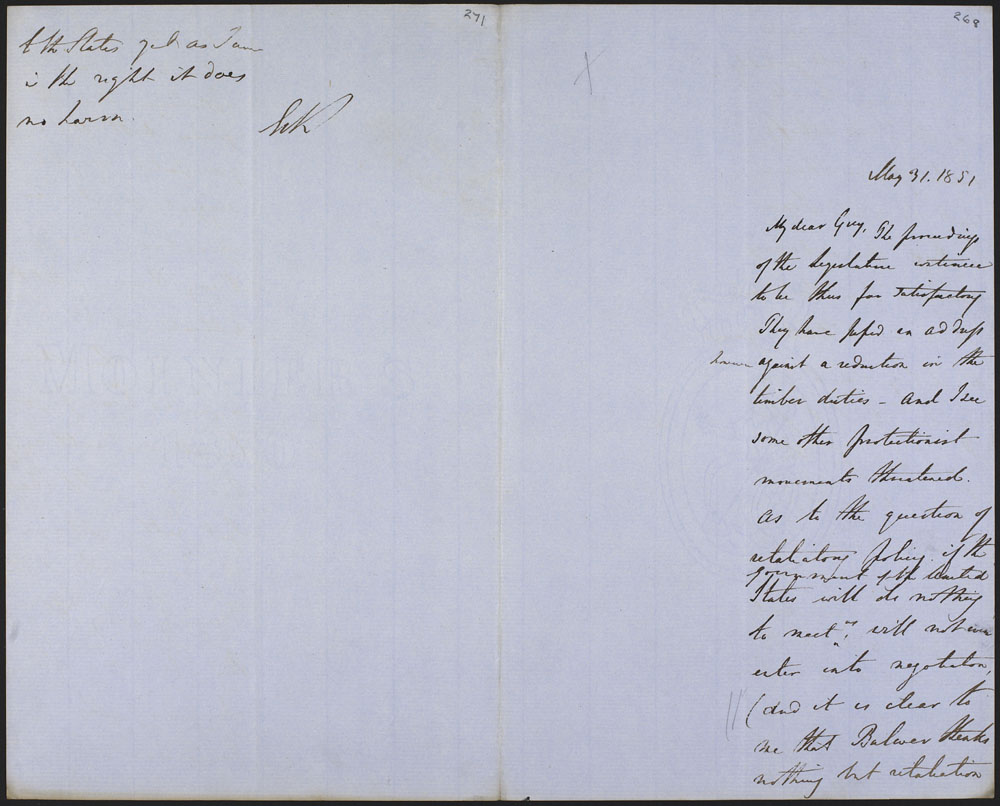 271
to the States yet as I am
in the right it does
no harm.
268
May 31. 1851
My dear Grey. The proceedings
of the Legislature continue
to be thus far satisfactory
They have passed an address
however against a reduction in the
timber duties – and I see
some other protectionist
movements threatened.
As to the question of
retaliatory policy. if the
Government of the United
States will do nothing
to meet us, will not even
enter into negotiation,
(and it is clear to
me that Bulwer thinks
nothing but retaliation